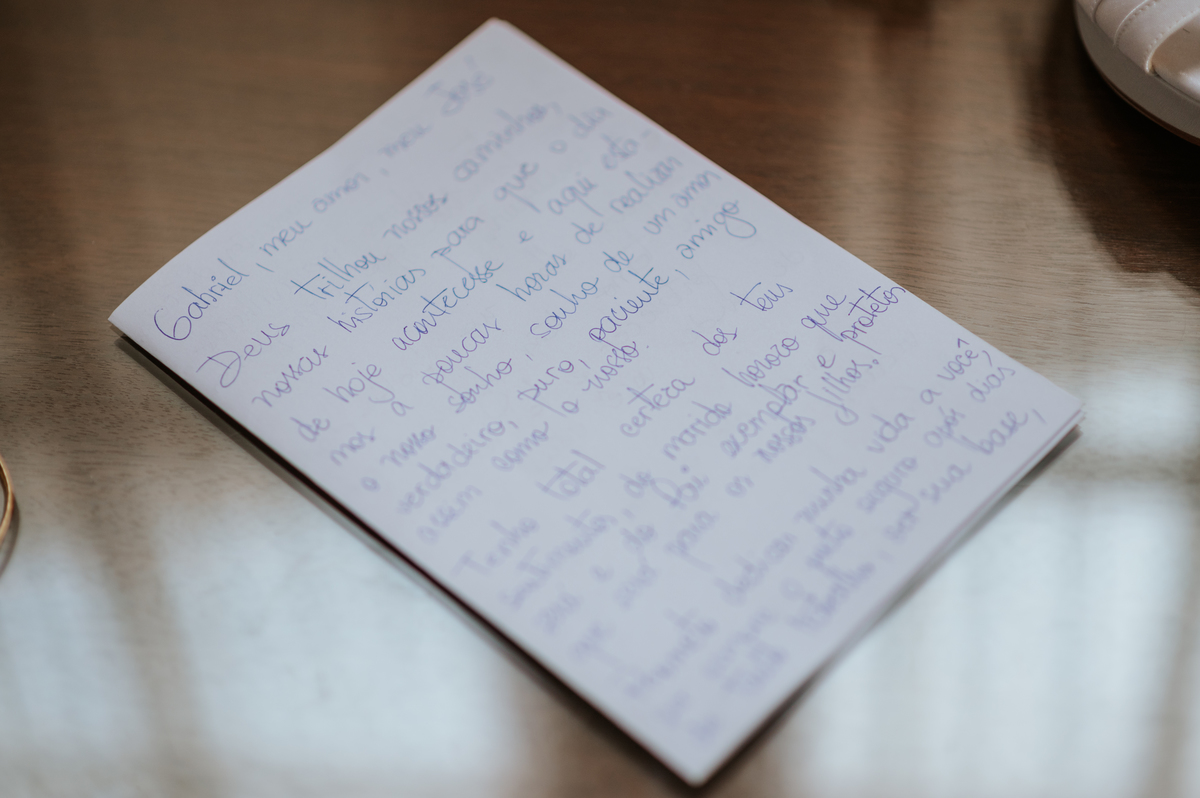 Gabriel, meu amor, meu José
Deus trilhou nossos caminhos,
nossas histórias para que o dia
de hoje acontecesse e aqui esta-
mos a poucas horas de realizar
o nosso sonho, sonho de um amor
verdadeiro, puro, paciente, amigo
assim como o nosso.
Tenho total certeza dos teus
sentimentos, do marido heroico que
será e do pai exemplar e protetor
que será para os nossos filhos.
dedicar minha vida a você,
porto seguro após dias
trabalho, ser sua base,